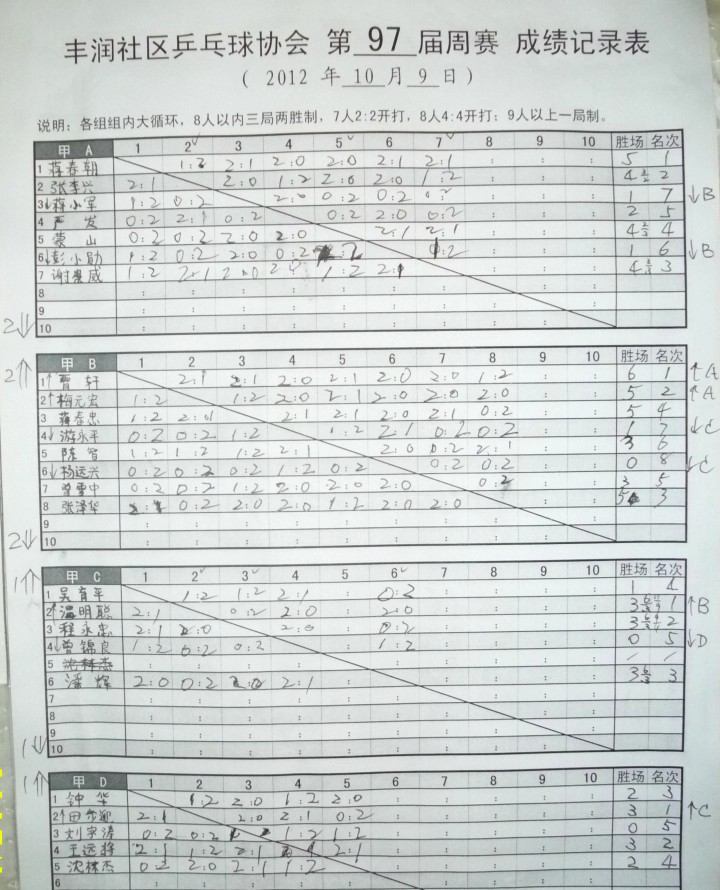 丰润社区乒乓球协会 第 97 届周赛 成绩记录表
( 2012 年 10 月 9 日 )
说明: 各组组内大循环, 8人以内三局两胜制, 7人2:2开打, 8人4:4开打; 9人以上一局制。
甲 A 1 2 3 4 5 6 7 8 9 10 胜场 名次
1 蒋春朝 2:1 2:0 2:0 2:1 2:1 5 1
2 张李兴 2:1 2:0 1:2 2:0 2:0 1:2 4 2
3 蒋小军 1:2 0:2 2:0 0:2 0:2 1 7 ↓B
4 严发 0:2 2:1 0:2 0:2 2:0 0:2 2 5
5 荣山 0:2 0:2 2:0 2:0 2:1 2:1 4 4
6 彭小勋 1:2 0:2 2:0 0:2 1 6 ↓B
7 谢 威 1:2 2:1 2:0 1:2 2:1 4 3
8
9
10
2↓
2↑
甲 B 1 2 3 4 5 6 7 8 9 10 胜场 名次
1↑ 曹轩 2:1 2:1 2:0 2:1 2:0 2:0 1:2 6 1 ↑A
2↑ 梅元宏 1:2 1:2 2:0 2:1 2:0 2:0 2:0 5 2 ↑A
3 蒋春忠 1:2 2:1 2:1 2:0 2:1 0:2 5 4
4↓ 游永平 0:2 0:2 1:2 1:2 2:1 0:2 0:2 1 7 ↓C
5 陈智 1:2 1:2 1:2 2:1 2:0 0:2 2:1 3 6
6↓ 杨远兴 0:2 0:2 0:2 1:2 0:2 0:2 0:2 0 8 ↓C
7 曾雪中 0:2 0:2 1:2 2:0 2:0 2:0 0:2 3 5
8 张泽华 0:2 2:0 2:0 1:2 2:0 2:0 5 3
9
10
2↓
1↑
甲 C 1 2 3 4 5 6 7 8 9 10 胜场 名次
1 吴育平 1:2 1:2 2:1 0:2 1 4
2↑ 温明聪 2:1 0:2 2:0 2:0 3 1 ↑B
3 程永忠 2:1 2:0 2:0 0:2 3 2
4↓ 曾锦良 1:2 0:2 0:2 1:2 0 5 ↓D
5 沈林杰 / /
6 潘辉 2:0 0:2 2:0 2:1 3 3
7
8
9
10
1↓
1↑
甲 D 1 2 3 4 5 6 7 8 9 10 胜场 名次
1 钟华 1:2 2:0 1:2 2:0 2 3
2↑ 田 2:1 2:0 2:1 0:2 3 1 ↑C
3 刘宇涛 0:2 0:2 1:2 1:2 0 5
4 王远锋 2:1 1:2 2:1 2:1 3 2
5 沈林杰 0:2 2:0 2:1 1:2 2 4
6